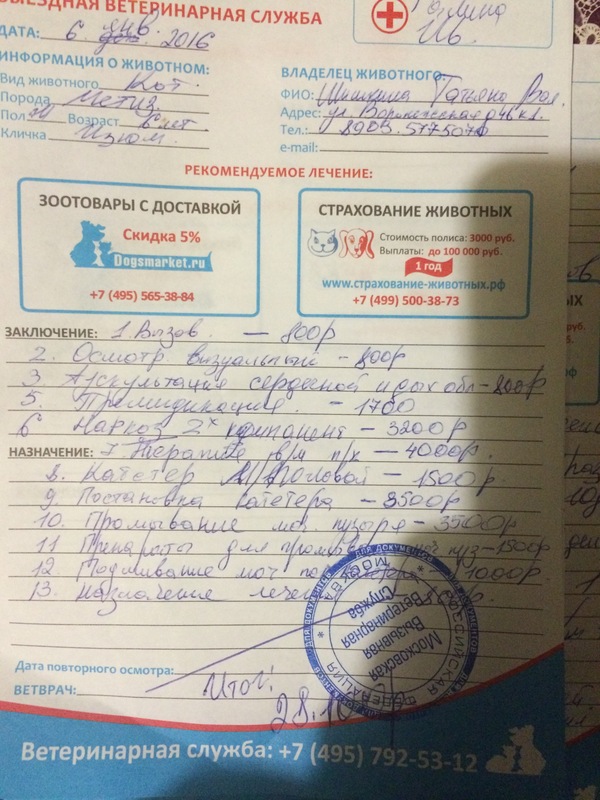 ВЫЕЗДНАЯ ВЕТЕРИНАРНАЯ СЛУЖБА
ДАТА: 6. янв. 2016
ИНФОРМАЦИЯ О ЖИВОТНОМ:
Вид животного Кот.
Порода Метиз
Пол М Возраст 6 лет
Кличка Изюм.
ВЛАДЕЛЕЦ ЖИВОТНОГО:
ФИО: Татьяна
Адрес: ул.
Тел.:
e-mail:
РЕКОМЕНДУЕМОЕ ЛЕЧЕНИЕ:
ЗООТОВАРЫ С ДОСТАВКОЙ
Скидка 5%
Dogsmarket.ru
+7 (495) 565-38-84
СТРАХОВАНИЕ ЖИВОТНЫХ
Стоимость полиса: 3000 руб.
Выплаты: до 100 000 руб.
1 год
www.страхование-животных.рф
+7 (499) 500-38-73
ЗАКЛЮЧЕНИЕ: 1. Вызов. — 800р
2. Осмотр визуальный - 800р
3. Аускультация сердечной и дых обл - 800р
5. Премидикация. - 1700
6 Наркоз 2х компонент - 3200р
НАЗНАЧЕНИЕ: 7 в/м п/к — 4000р.
8. Катетер — 1500р
9. Постановка катетера - 3500р
10. Промывание моч. пузыря - 3500р
11 Препараты для моч пуз - 1500р
12. Подшивание моч 1000р
13. Назначение
МОСКВА
Московская
Вызывная
Ветеринарная
Служба
ДЛЯ ДОКУМЕНТОВ
РОССИЙСКАЯ ФЕДЕРАЦИЯ
Дата повторного осмотра:
ВЕТВРАЧ: Итог:
Ветеринарная служба: +7 (495) 792-53-12